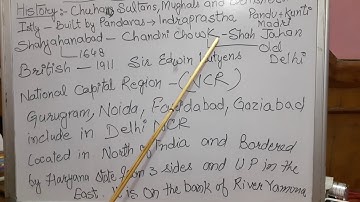 History:- Chuhan, Sultans, Mughals and British
Istly - Built by Pandavas → Indraprastha Pandu + Kunti
Madri
Shahjahanabad - Chandni Chowk - Shah Jahan
1648 Old
British - 1911 Sir Edwin Lutyens Delhi
National Capital Region - (NCR)
Gurugram, Noida, Faridabad, Gaziabad
include in Delhi NCR
Located in North of India and Bordered
by Haryana State from 3 sides and UP in the
East. It is on the bank of River Yamuna